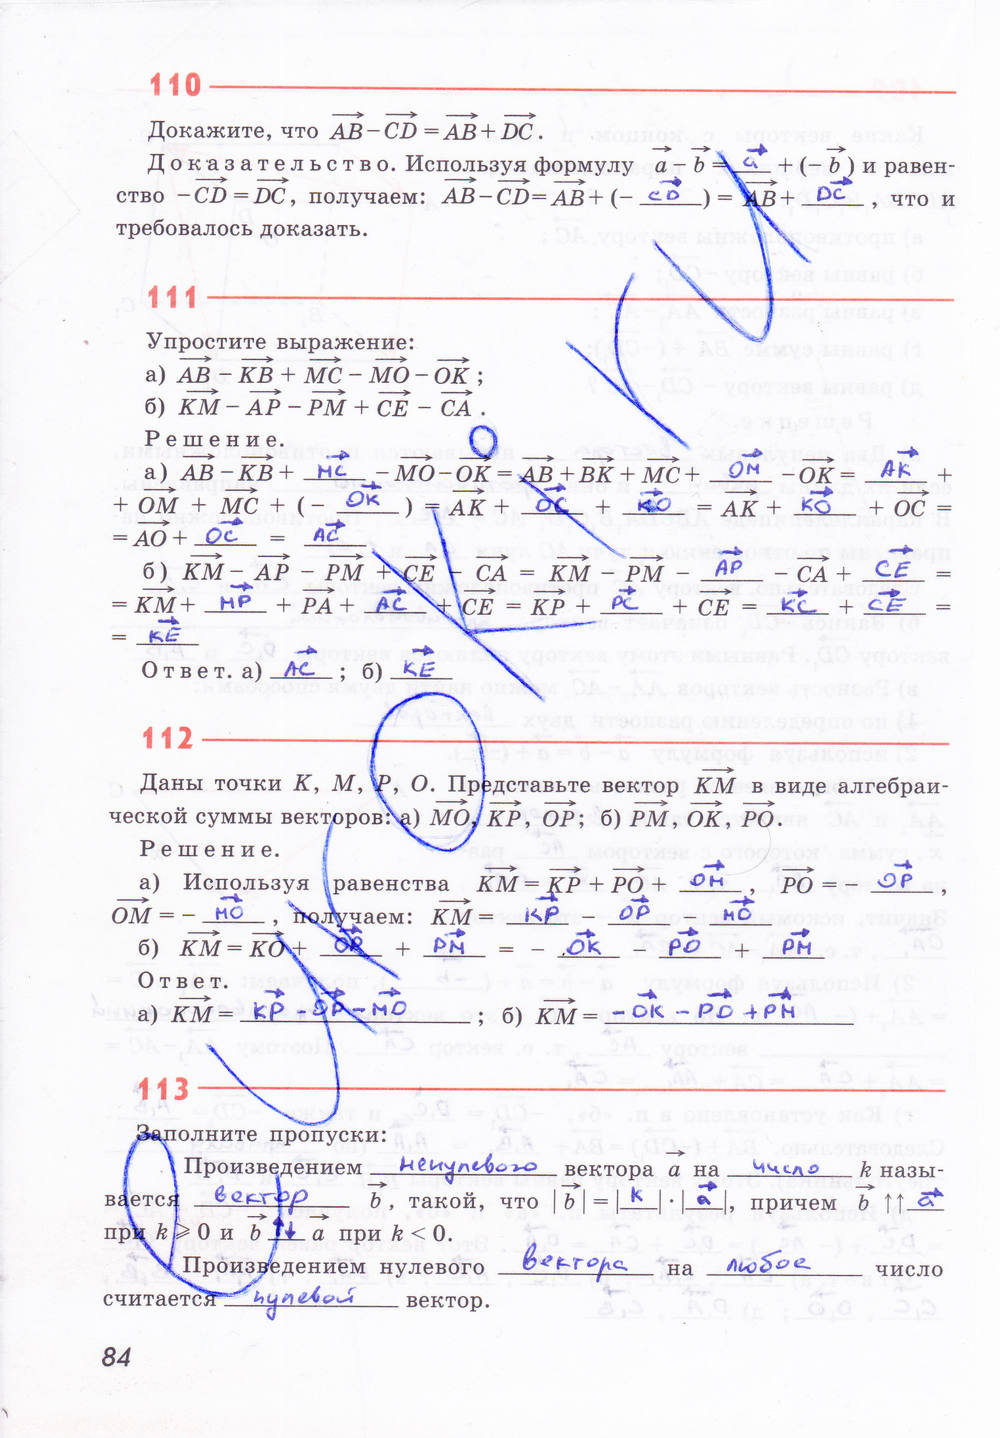 110
Докажите, что AB − CD = AB + DC.
Доказательство. Используя формулу a − b = a + (− b) и равен-
ство −CD = DC, получаем: AB − CD = AB + (− CD) = AB + DC, что и
требовалось доказать.
111
Упростите выражение:
а) AB − KB + MC − MO − OK;
б) KM − AP − PM + CE − CA.
Решение.
а) AB − KB + MC − MO − OK = AB + BK + MC + OM − OK = AK +
+ OM + MC + ( OK ) = AK + OC + KO = AK + KO + OC =
= AO + OC = AC
б) KM − AP − PM + CE − CA = KM − PM − AP − CA + CE =
= KM + MP + PA + AC + CE = KP + PC + CE = KC + CE =
= KE
Ответ. а) AC; б) KE
112
Даны точки K, M, P, O. Представьте вектор KM в виде алгебраи-
ческой суммы векторов: а) MO, KP, OP; б) PM, OK, PO.
Решение.
а) Используя равенства KM = KP + PO + OM, PO = − OP,
OM = − MO, получаем: KM = KP − OP − MO
б) KM = KO + OP + PM = − OK − PO + PM
Ответ.
а) KM = KP − OP − MO; б) KM = − OK − PO + PM
113
Заполните пропуски:
Произведением ненулевого вектора a на число k назы-
вается вектор b, такой, что |b| = |k| · |a|, причем b ↑↑ a
при k ⩾ 0 и b ↑↓ a при k < 0.
Произведением нулевого вектора на любое число
считается нулевой вектор.
84